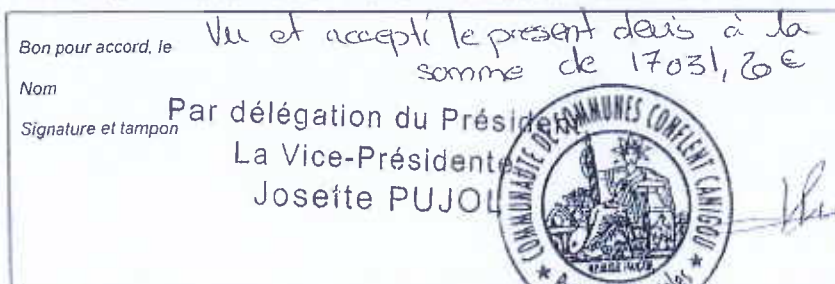 Bon pour accord, le Vu et accepté le présent devis à la
somme de 17031,20 €
Nom
Signature et tampon
Par délégation du Président
La Vice-Présidente
Josette PUJOL
COMMUNAUTE DE COMMUNES CONFLENT CANIGOU